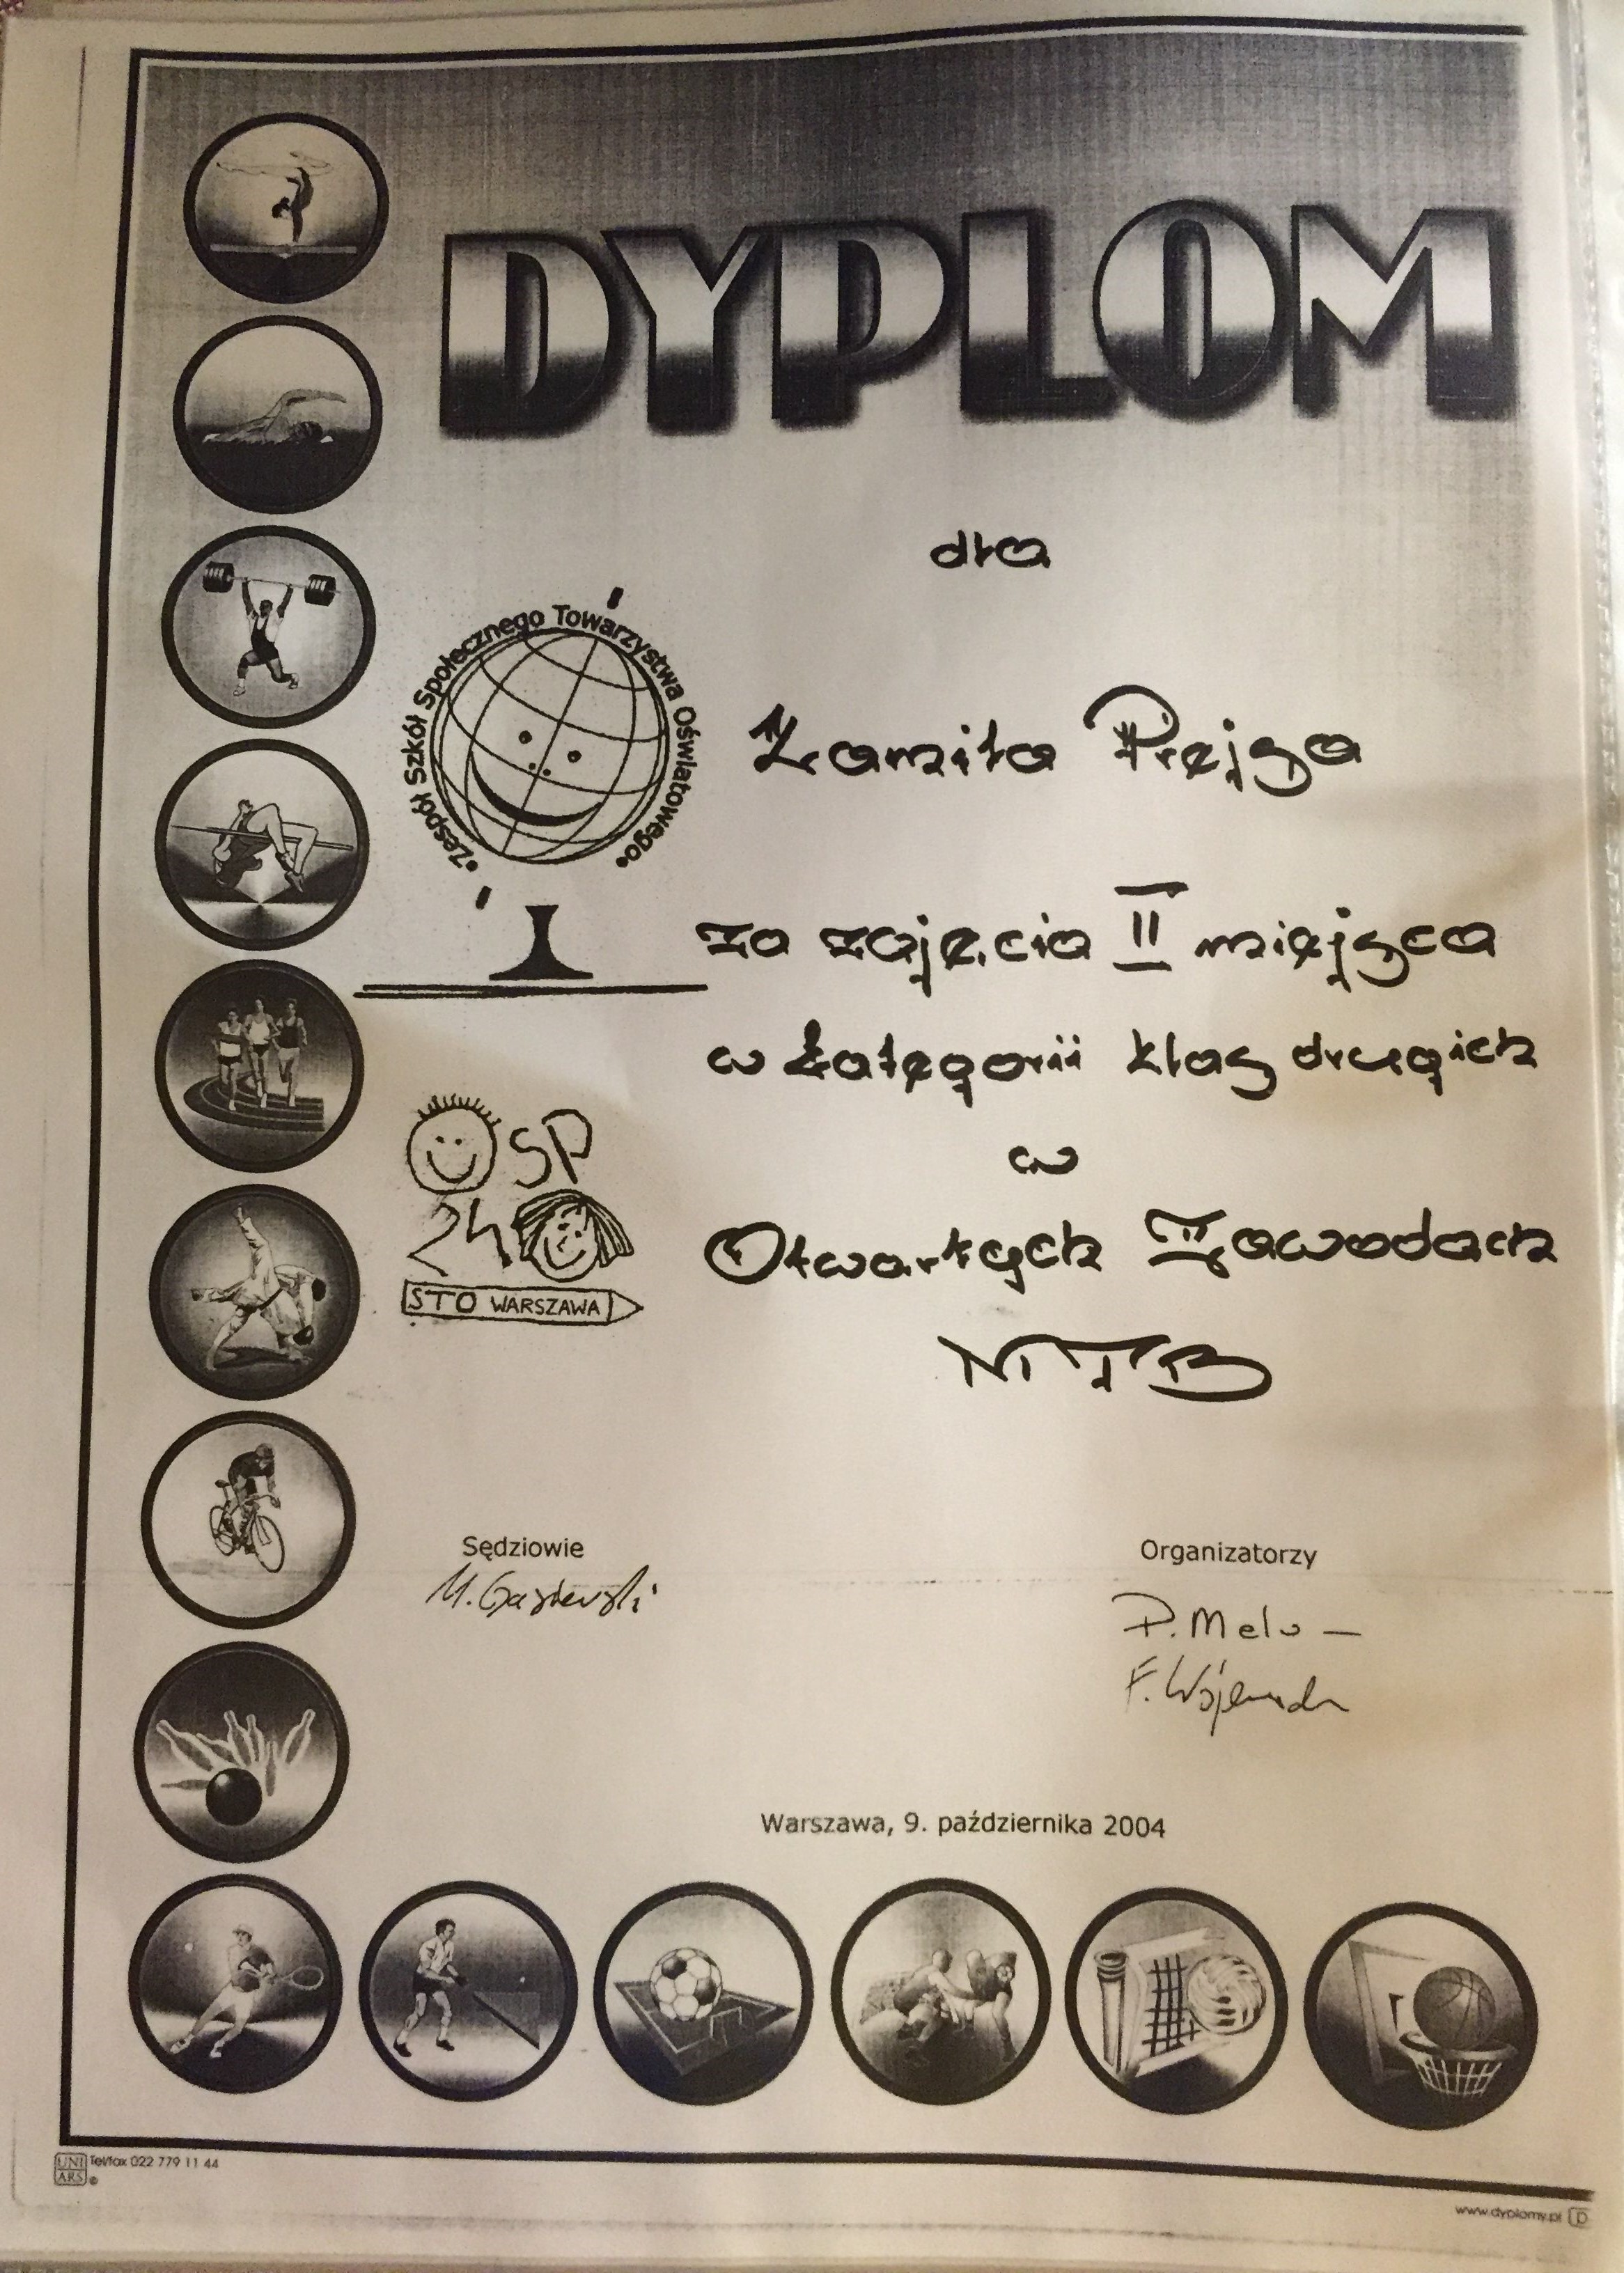 DYPLOM
dla
•Zespół Szkół Społecznego Towarzystwa Oświatowego•
Kamila Prejsa
za zajęcia II miejsca
w kategorii klas drugich
w
Otwartych Zawodach
MTB
SP
24
STO WARSZAWA
Sędziowie
Organizatorzy
M. Gąsiewski
P. Melo
F.
Warszawa, 9. października 2004
UNI
ARS
Tel/fax 022 779 11 44
www.dyplomy.pl D